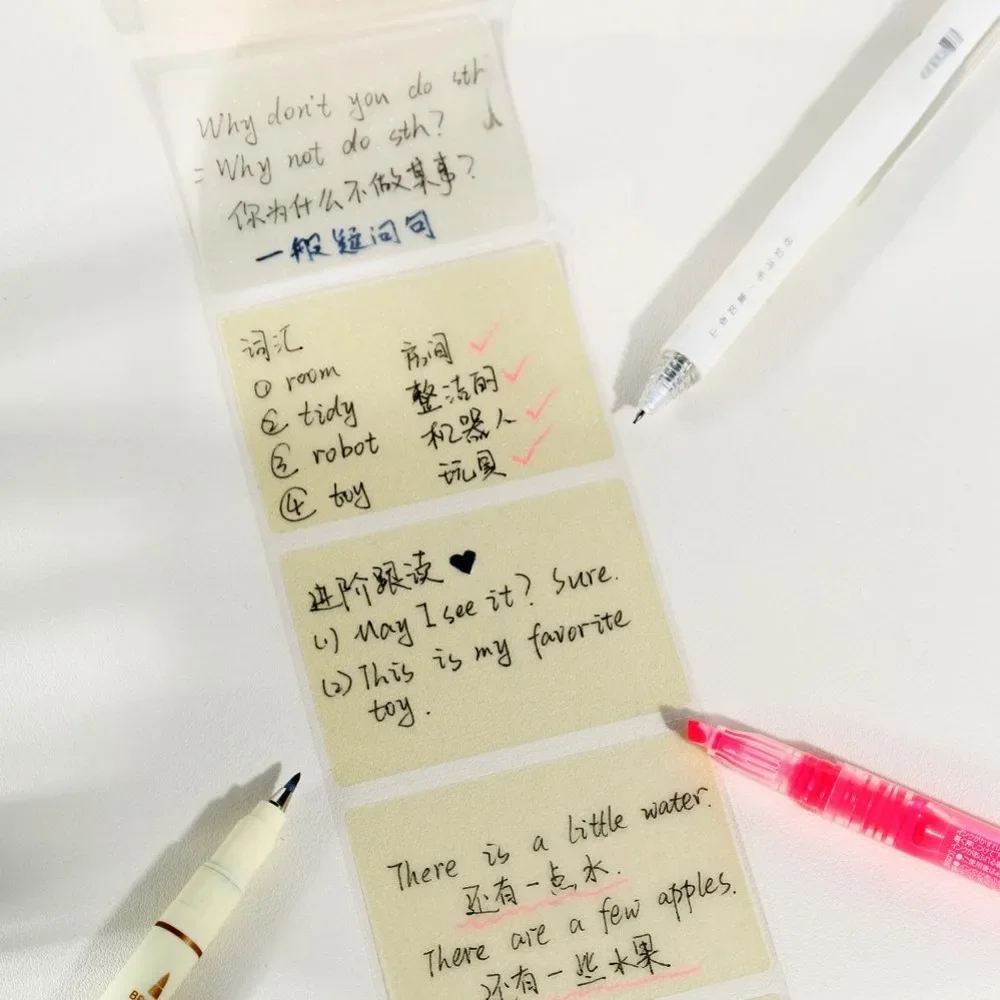 Why don't you do sth
= Why not do sth?
你为什么不做某事?
一般疑问句
词汇
① room 房间 ✓
② tidy 整洁的 ✓
③ robot 机器人 ✓
④ toy 玩具 ✓
进阶跟读 ♥
(1) May I see it? Sure.
(2) This is my favorite
toy.
There is a little water.
还有一点水.
There are a few apples.
还有一些水果